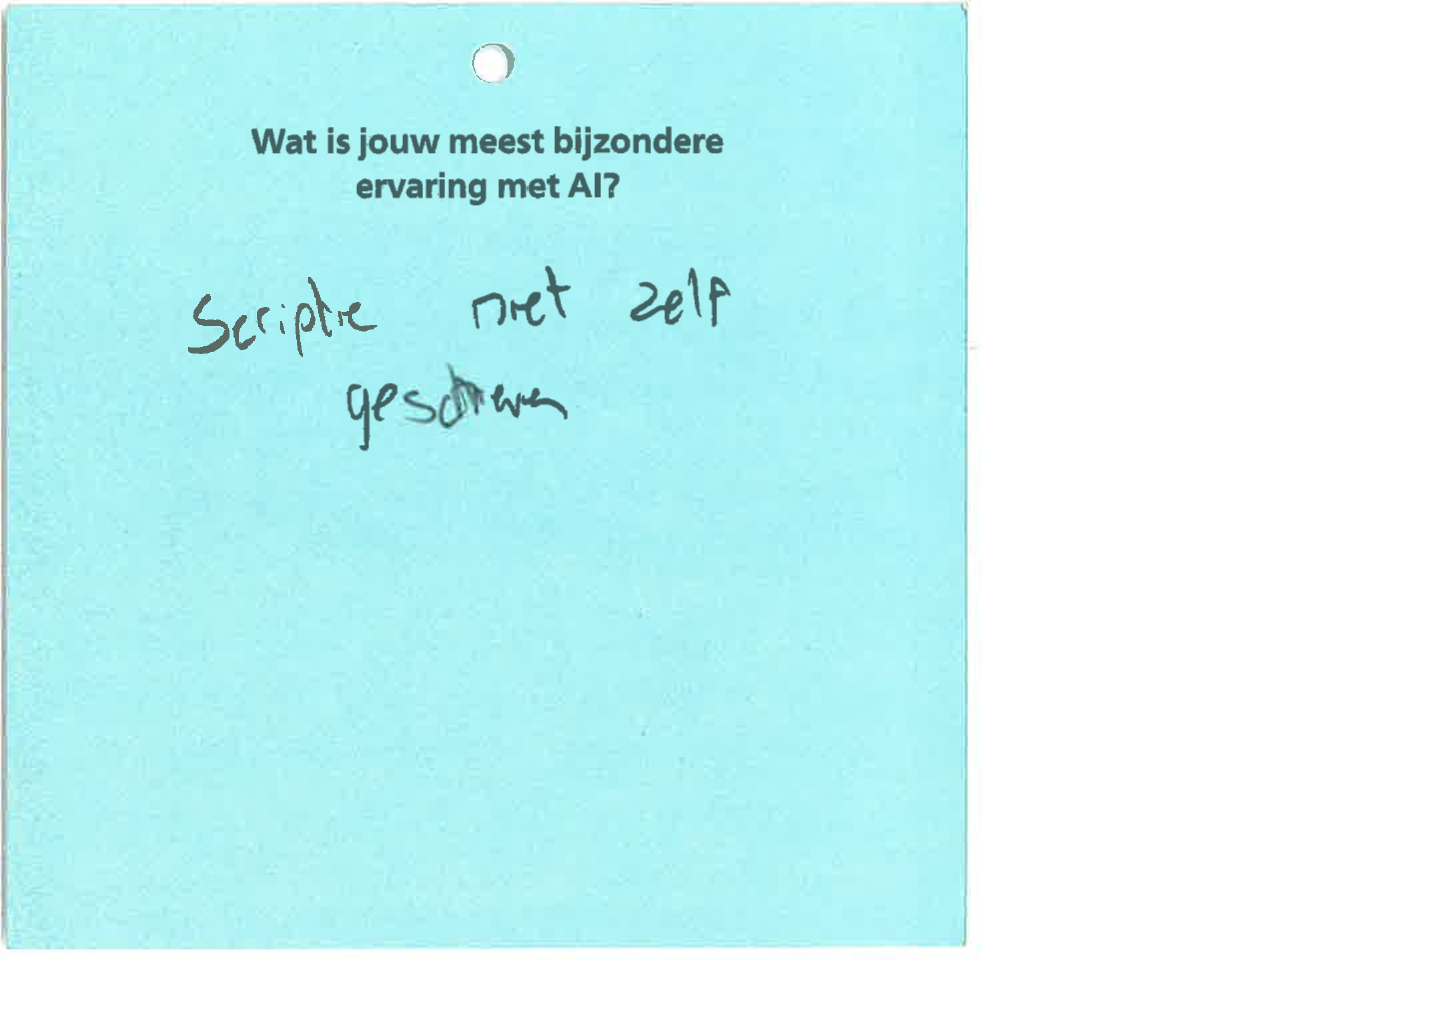 Wat is jouw meest bijzondere
ervaring met AI?
Scriptie niet zelf
geschreven